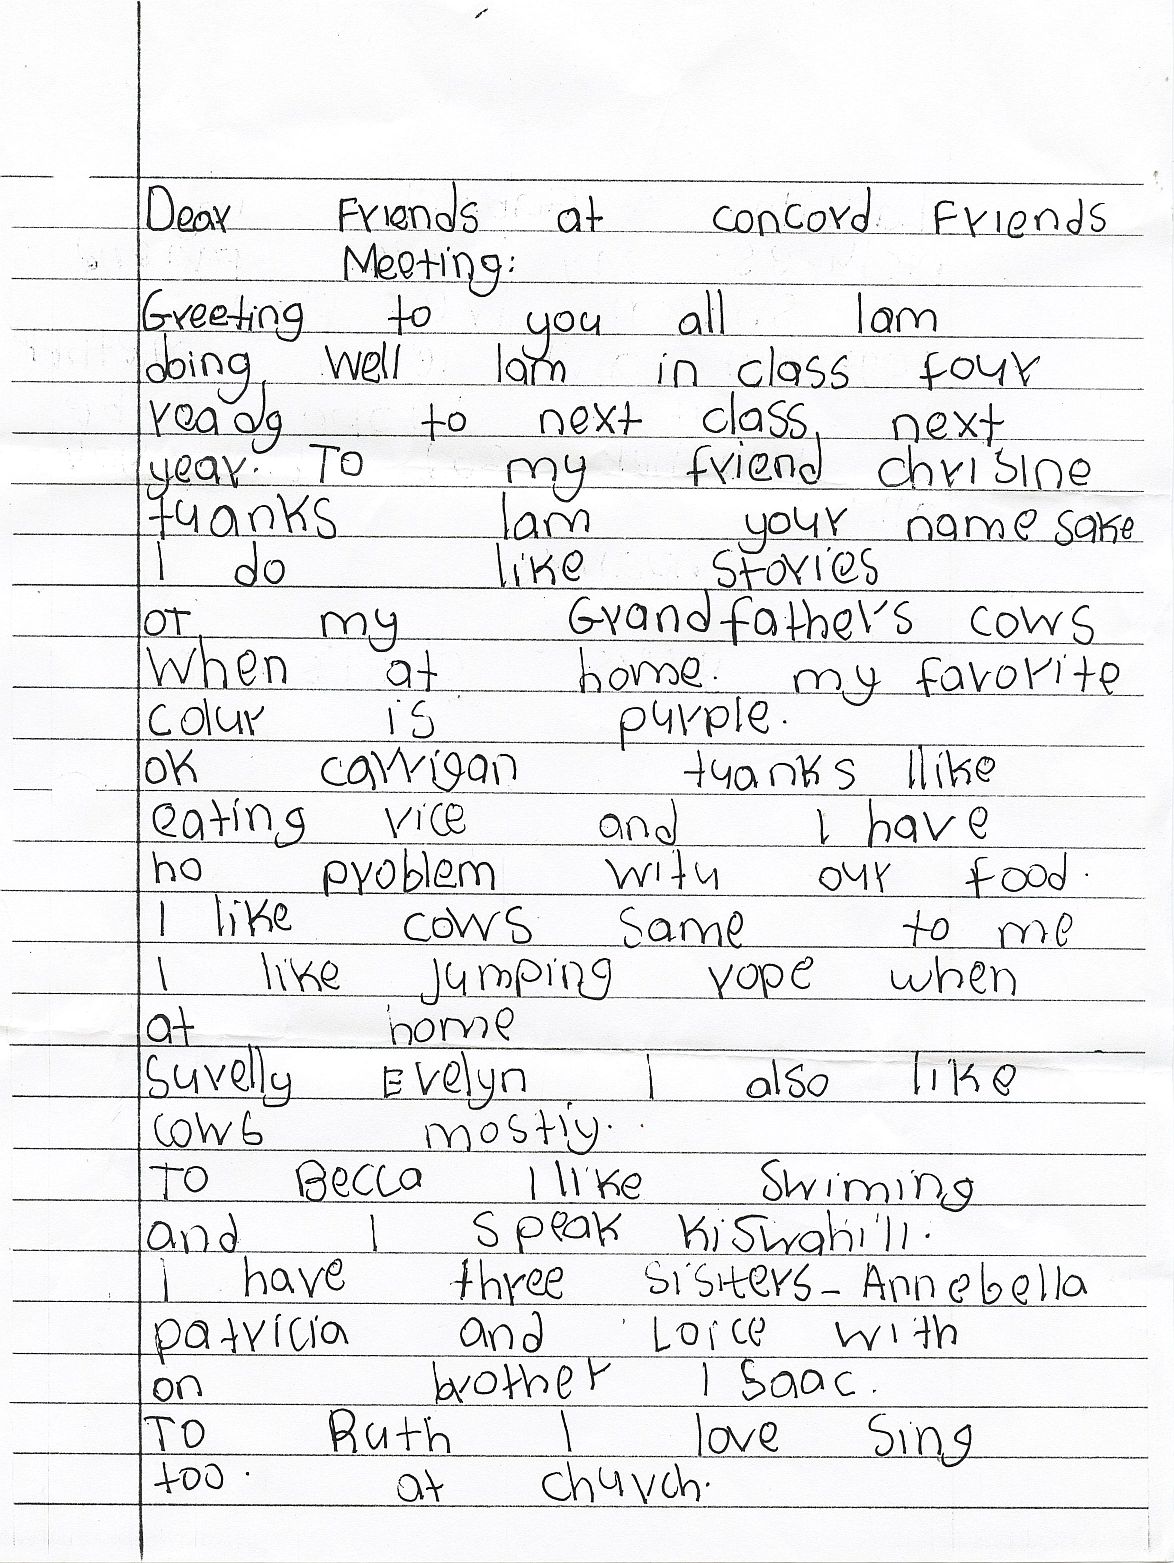 Dear Friends at concord Friends
Meeting:
Greeting to you all Iam
doing, well Iam in class four
ready to next class, next
year. To my friend chrisine
tuanks Iam your name sake
I do like stories
of my Grandfather's cows
When at home. my favorite
colur is purple.
ok carrigan tuanks Ilike
eating rice and I have
no problem witu our food.
I like cows same to me
I like jumping rope when
at home
Surelly Evelyn I also like
cows mostly.
To Becca I like Swiming
and I speak Kiswahili.
I have three sisiters- Annebella
patricia and Loice with
on brother Isaac.
To Ruth I love Sing
too. at church.